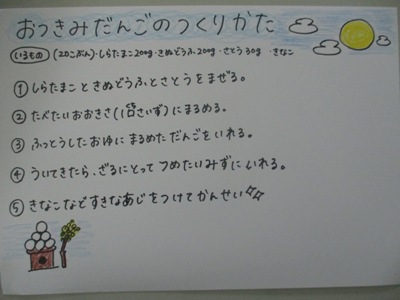 おつきみだんごのつくりかた
いるもの (20こぶん)・しらたまこ200g・きぬどうふ200g・さとう30g ・きなこ
① しらたまこときぬどうふとさとうをまぜる。
② たべたいおおきさ(1口さいず)にまるめる。
③ ふっとうしたおゆにまるめただんごをいれる。
④ ういてきたら、ざるにとってつめたいみずにいれる。
⑤ きなこなどすきなあじをつけてかんせい